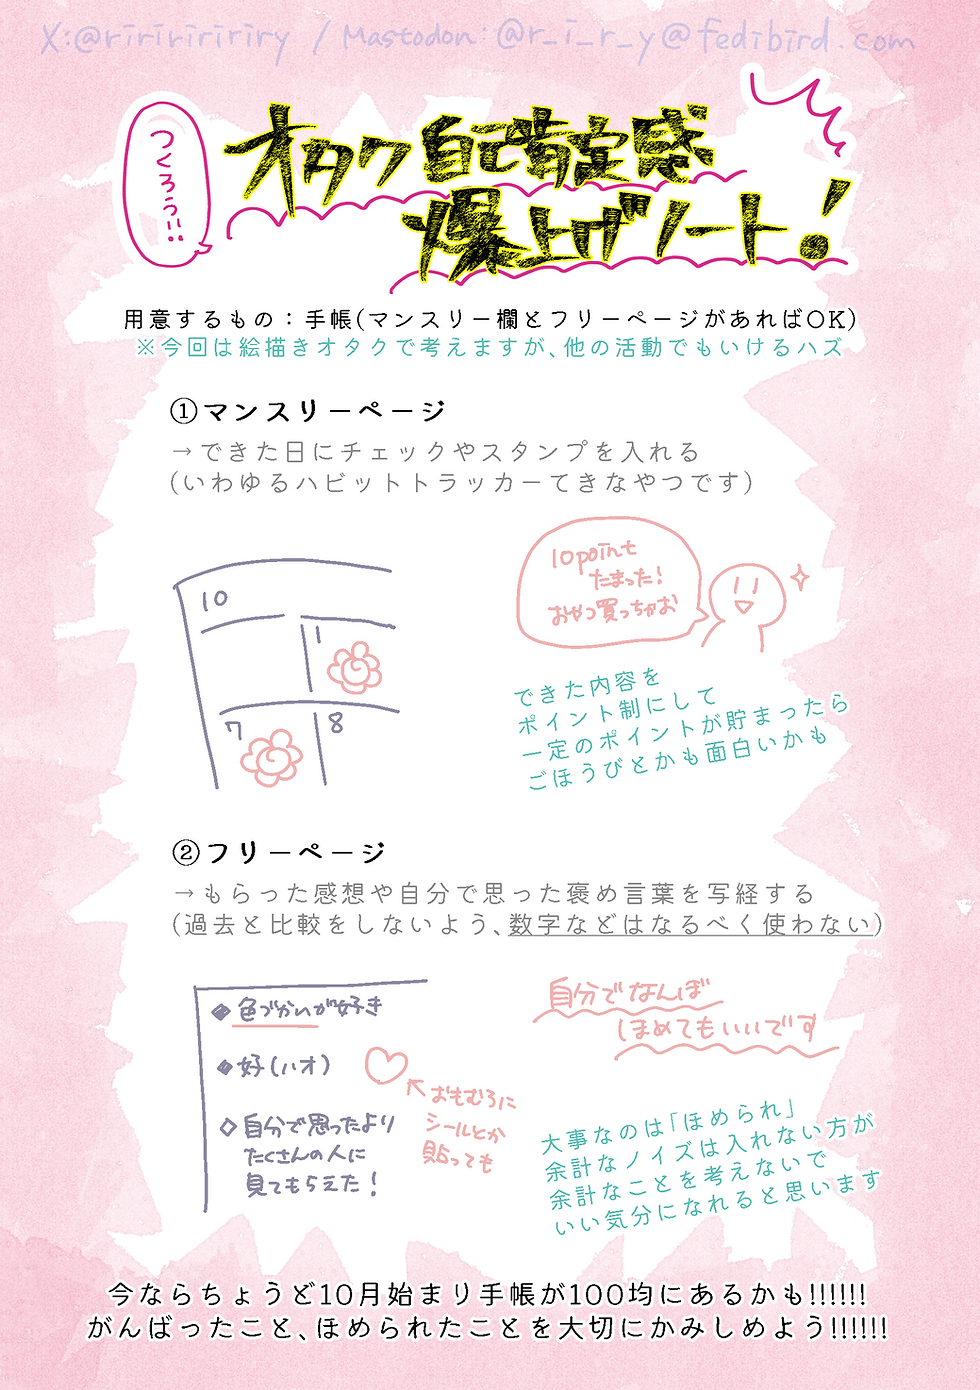 X:@ririririririry / Mastodon:@r_i_r_y@fedibird.com
つくろう!!
オタク自己肯定感
爆上げノート!
用意するもの：手帳(マンスリー欄とフリーページがあればOK)
※今回は絵描きオタクで考えますが、他の活動でもいけるハズ
①マンスリーページ
→できた日にチェックやスタンプを入れる
(いわゆるハビットトラッカーてきなやつです)
10
1
7
8
10point
たまった!
おやつ買っちゃお
できた内容を
ポイント制にして
一定のポイントが貯まったら
ごほうびとかも面白いかも
②フリーページ
→もらった感想や自分で思った褒め言葉を写経する
(過去と比較をしないよう、数字などはなるべく使わない)
◆色づかいが好き
◆好(ハオ)
◇自分で思ったより
たくさんの人に
見てもらえた!
おもむろに
シールとか
貼っても
自分でなんぼ
ほめてもいいです
大事なのは「ほめられ」
余計なノイズは入れない方が
余計なことを考えないで
いい気分になれると思います
今ならちょうど10月始まり手帳が100均にあるかも!!!!!!
がんばったこと、ほめられたことを大切にかみしめよう!!!!!!